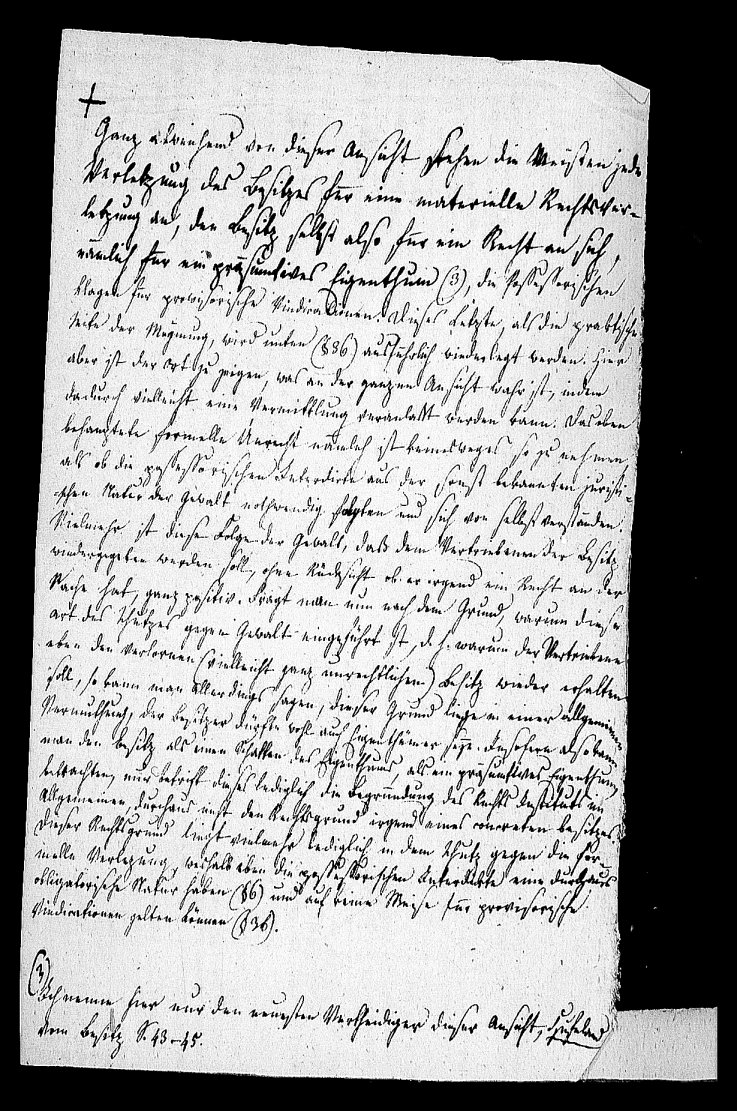 +
Ganz abweichend von dieser Ansicht sehen die Meisten jede
Verletzung des Besitzes für eine materielle Rechtsver-
letzung an, den Besitz selbst also für ein Recht an sich,
nämlich für ein präsumtives Eigenthum (3), die possessorischen
Klagen für provisorische Vindicationen. Dieses Letzte, als die praktische
Seite der Meynung, wird unten (§36) ausführlich wiederlegt werden. Hier
aber ist der Ort zu zeigen, was an der ganzen Ansicht wahr ist, indem
dadurch vielleicht eine Vermittlung veranlaßt werden kann. Das eben
behauptete formelle Unrecht nämlich ist keinesweges so zu nehmen
als ob die possessorischen Interdicte aus der sonst bekannten juristi-
schen Natur der Gewalt nothwendig folgten und sich von selbst verstünden.
Vielmehr ist diese Folge der Gewalt, daß dem Vertriebenen der Besitz
wiedergegeben werden soll, ohne Rücksicht ob er irgend ein Recht an der
Sache hat, ganz positiv. Fragt man nun nach dem Grund, warum diese
Art des Schutzes gegen Gewalt eingeführt ist, d. h. warum der Vertriebene
eben den verlornen (vielleicht ganz unrechtlichen) Besitz wieder erhalten
soll, so kann man allerdings sagen, dieser Grund liege in einer allgemeinen
Vermuthung, der Besitzer dürfte wohl auch Eigenthümer seyn. Insofern also kann
man den Besitz als einen Schatten des Eigenthums, als ein präsumtives Eigenthum
betrachten, nur betrift dieses lediglich die Begründung des Rechts Instituts im
Allgemeinen, durchaus nicht den Rechtsgrund irgend eines concreten Besitzes.
Dieser Rechtsgrund liegt vielmehr lediglich in dem Schutz gegen die for-
melle Verletzung, weshalb eben die possessorischen Interdicte eine durchaus
obligatorische Natur haben (§6) und auf keine Weise für provisorische
Vindicationen gelten können (§36).
(3) Ich nenne hier nur den neuesten Vertheidiger dieser Ansicht, Hufeland
vom Besitz S. 43-45.